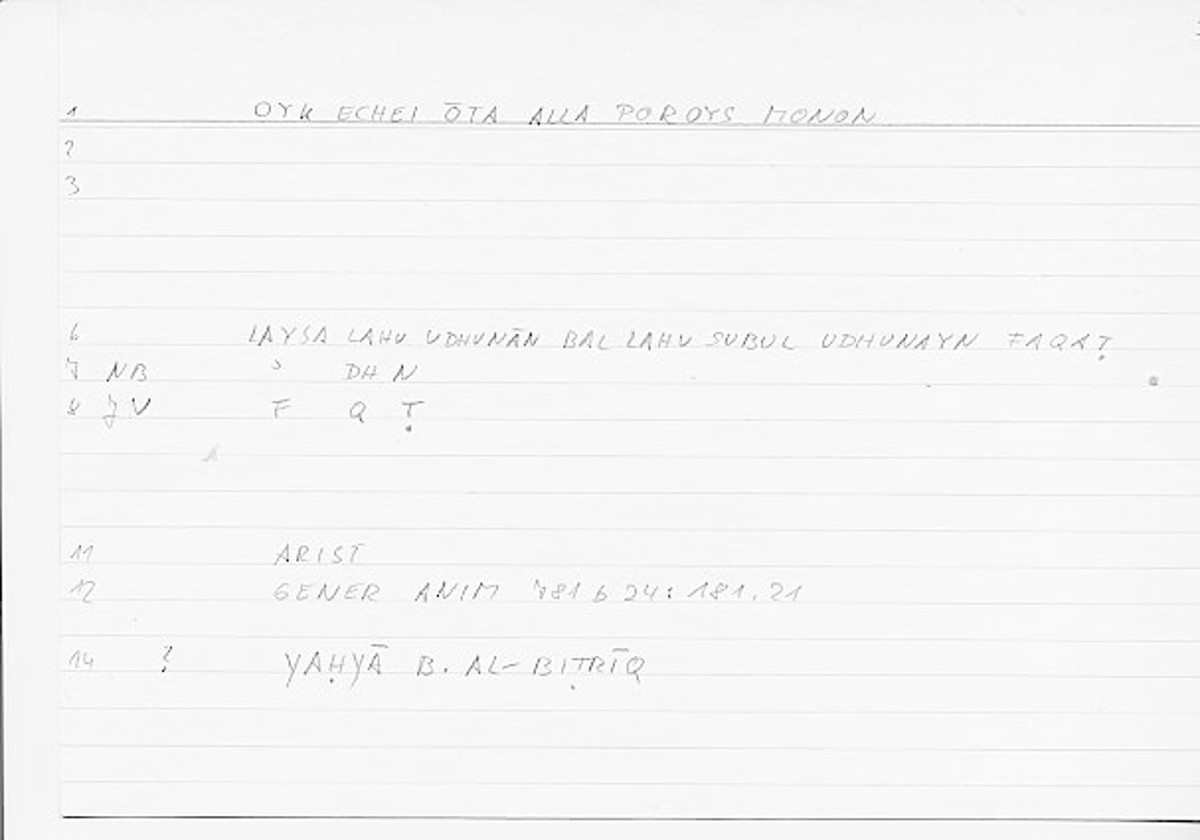 1 OYK ECHEI ŌTA ALLA POROYS MONON
2
3
6 LAYSA LAHU UDHUNĀN BAL LAHU SUBUL UDHUNAYN FAQAṬ
7 NB ʾ DH N
8 JV F Q Ṭ
11 ARIST
12 GENER ANIM 781 b 24: 181.21
14 ? YAḤYĀ B. AL-BIṬRĪQ